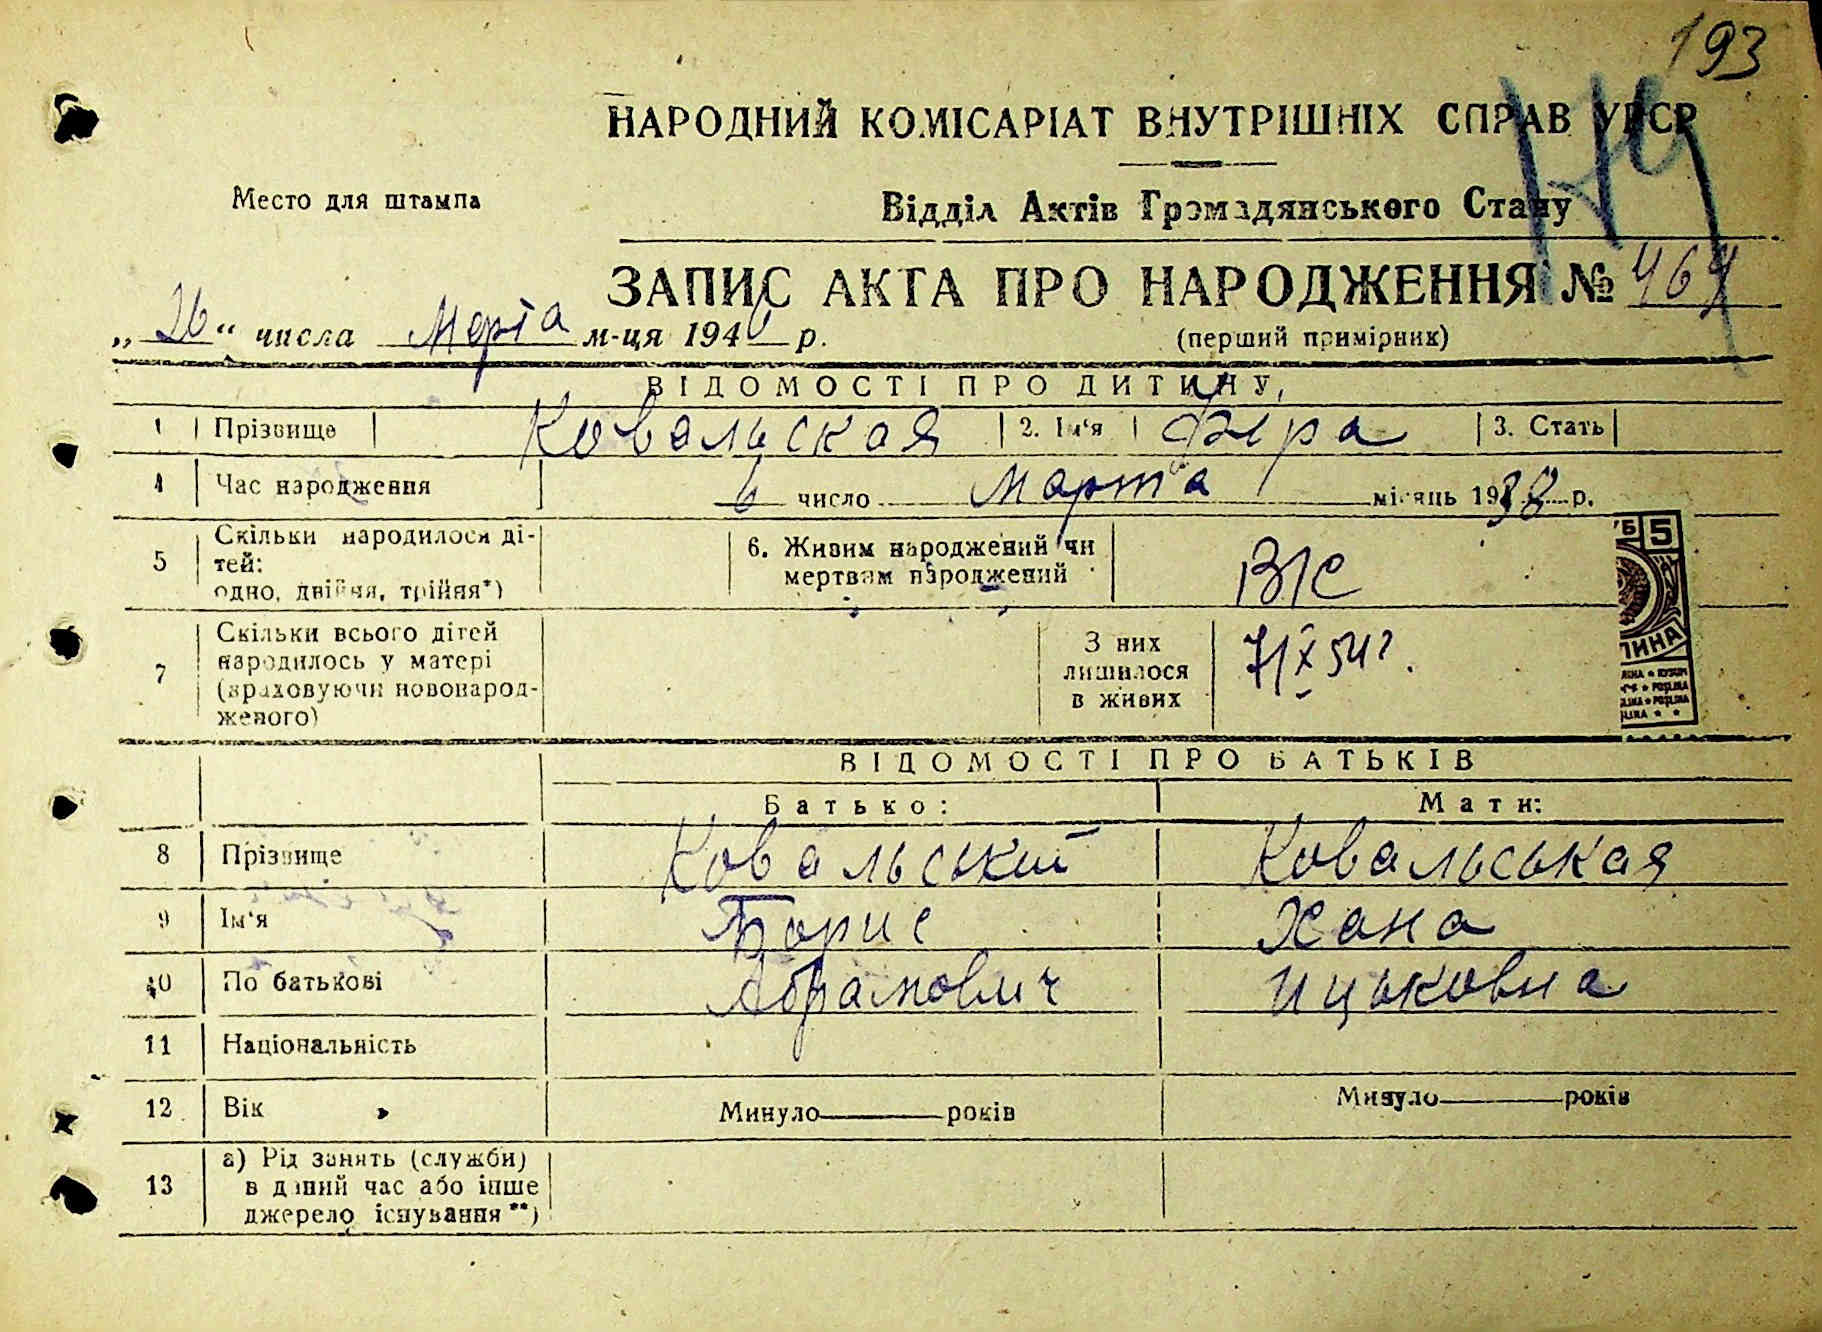 193
НАРОДНИЙ КОМІСАРІАТ ВНУТРІШНІХ СПРАВ УРСР
Место для штампа
Відділ Актів Громадянського Стану
ЗАПИС АКТА ПРО НАРОДЖЕННЯ №
„26“ числа Марта м-ця 194 р.
(перший примірник)
ВІДОМОСТІ ПРО ДИТИНУ
1 Прізвище Ковальская 2. Ім'я 3. Стать
4 Час народження 6 число Марта місяць 1938 р.
5 Скільки народилося ді-
тей:
одно, двійня, трійня*)
6. Живим народжений чи
мертвим народжений
В/С
7 Скільки всього дітей
народилось у матері
(враховуючи новонарод-
женого)
З них
лишилося
в живих
7/X 54 г.
5
ВІДОМОСТІ ПРО БАТЬКІВ
Батько: Мати:
8 Прізвище Ковальський Ковальськая
9 Ім'я Борис Хана
10 По батькові Абрамович Ицьковна
11 Національність
12 Вік Минуло років Минуло років
13 а) Рід занять (служби)
в даний час або інше
джерело існування**)